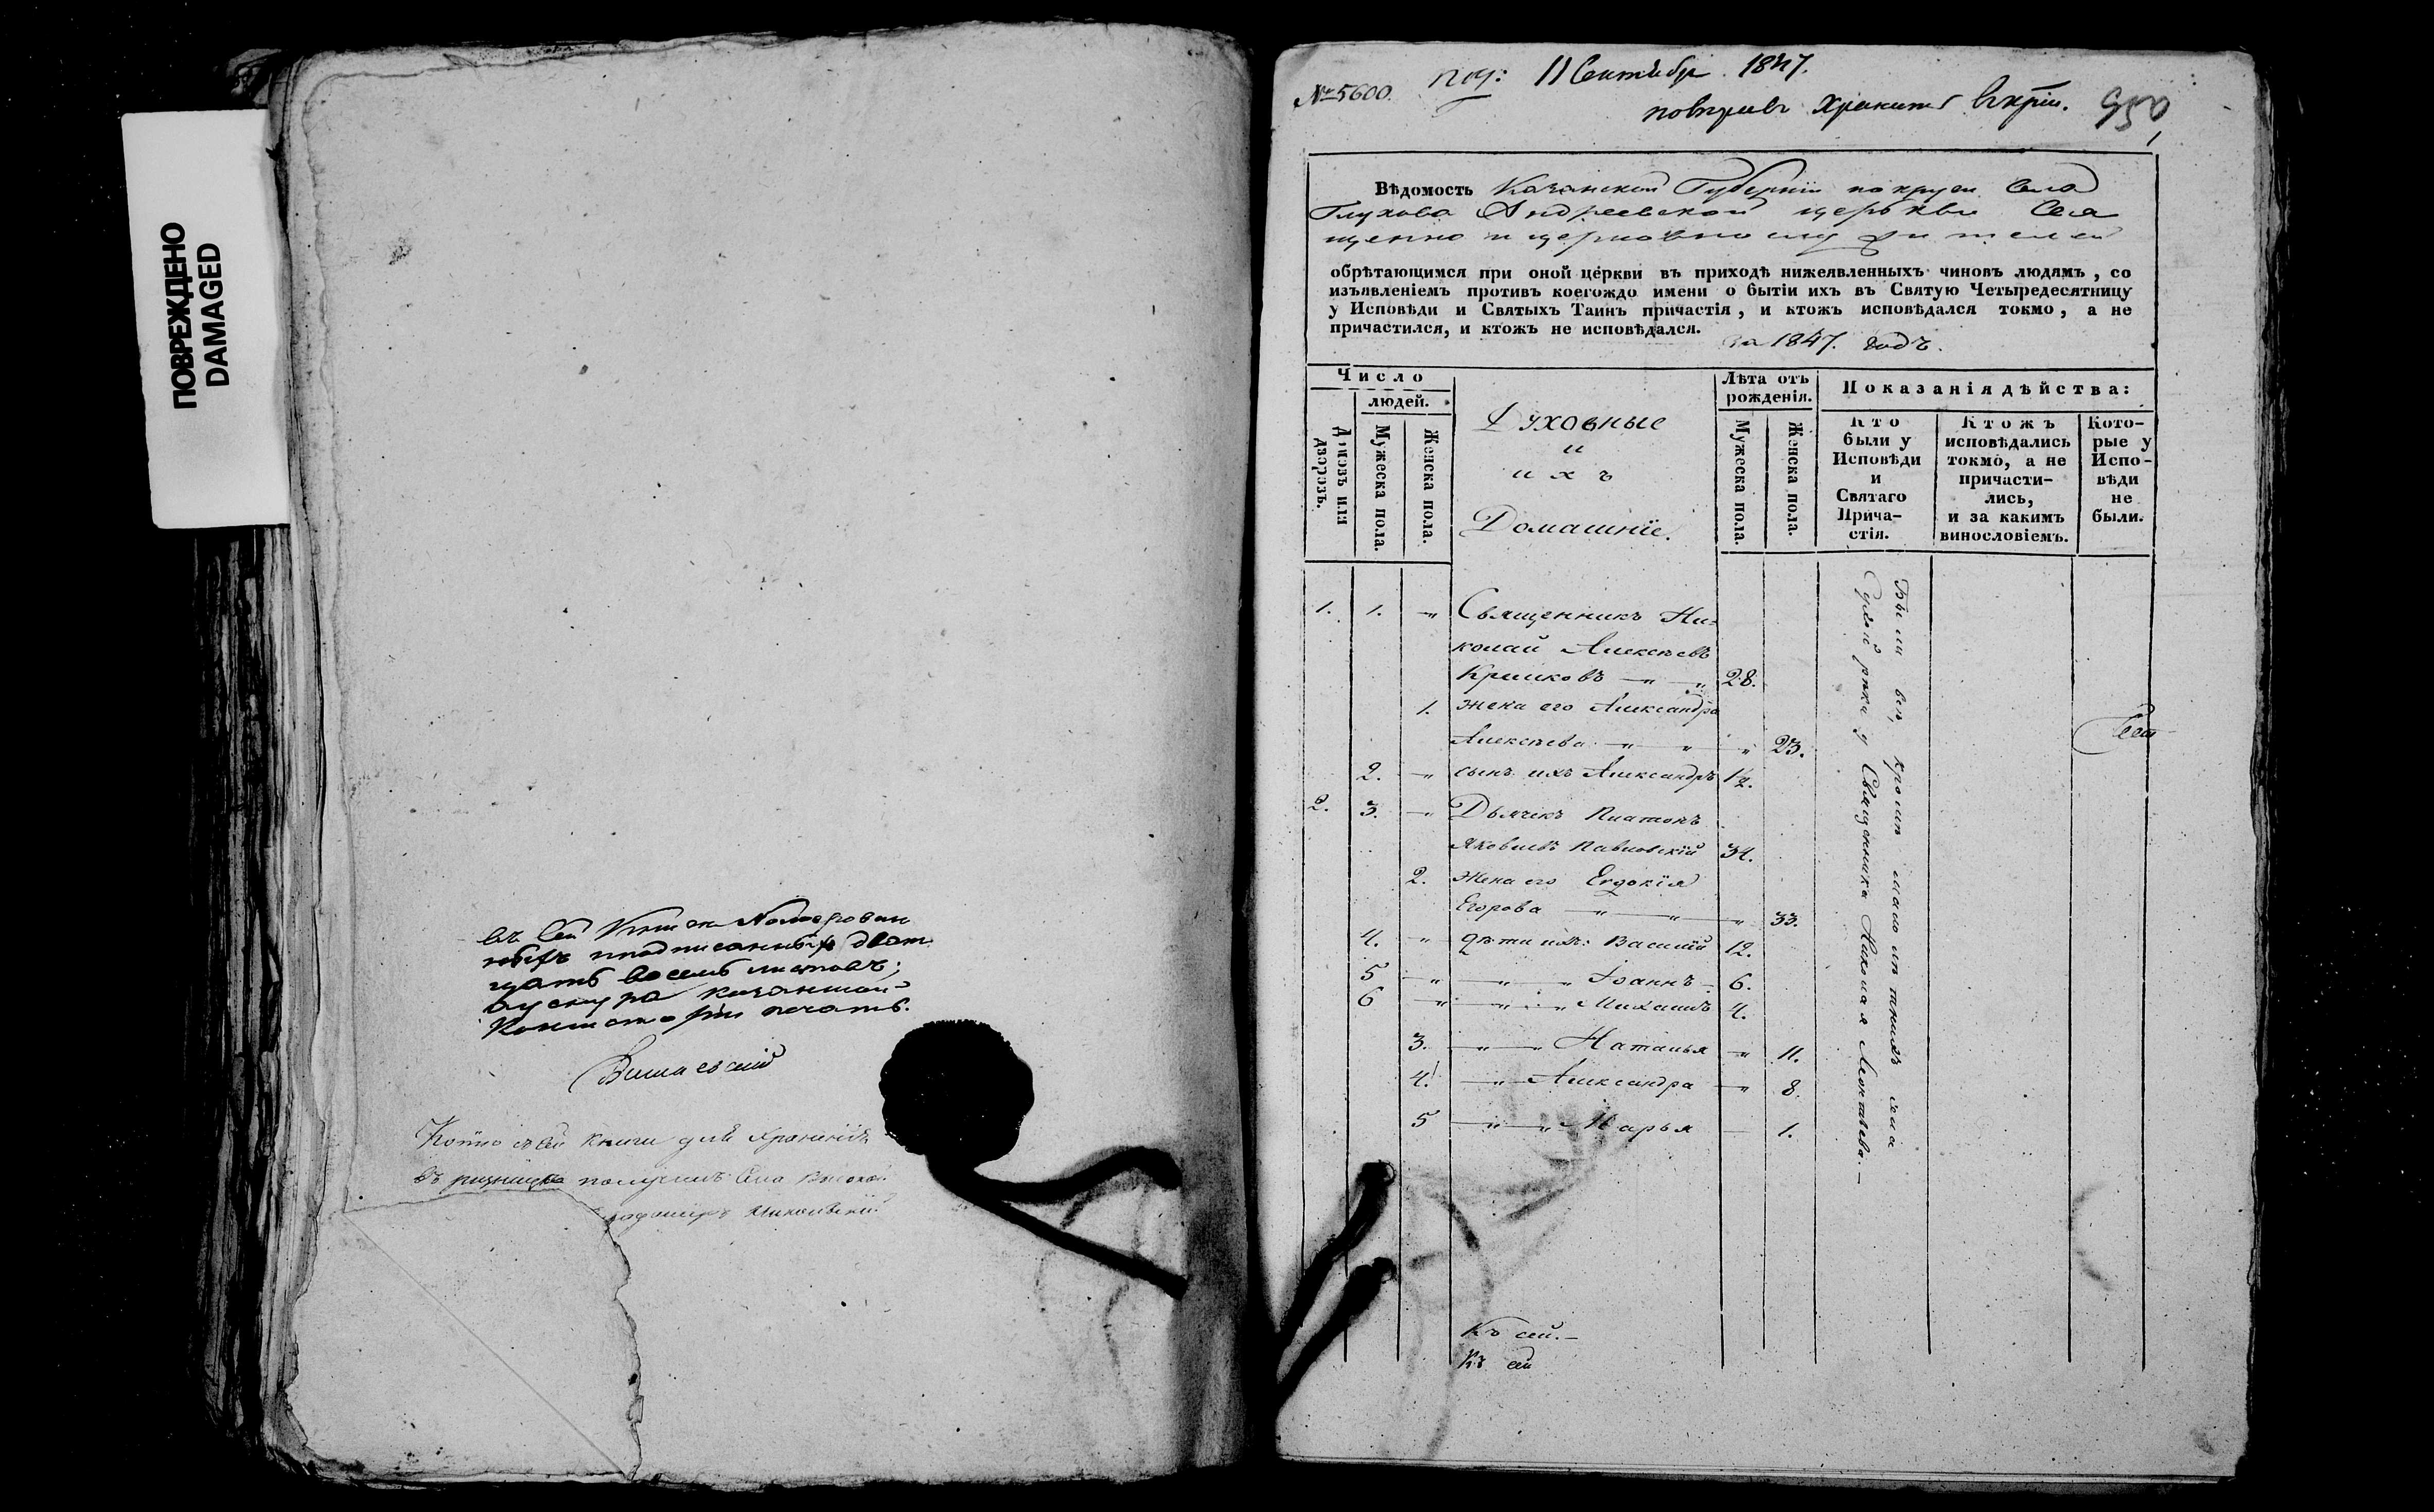 ПОВРЕЖДЕНО
DAMAGED
въ сей Книге Номерован
ныхъ и подписанныхъ двад
цать восемь листовъ;
Казанской
Консисторіи печать.
Копію съ сей книги для храненія
въ ризницѣ получилъ Села
№ 5600. пол: 11 Сентября 1847.
повѣривъ хранить
950
Вѣдомость Казанской Губерніи Села
Глухова Андреевской церкви Свя
щенно и церковнослужителей
обрѣтающимся при оной церкви въ приходѣ нижеявленныхъ чиновъ людямъ, со
изъявленіемъ противъ коегождо имени о бытіи ихъ въ Святую Четыредесятницу
у Исповѣди и Святыхъ Таинъ причастія, и ктожъ исповѣдался токмо, а не
причастился, и ктожъ не исповѣдался.
за 1847. годъ.
Число
людей.
Домовъ или дворовъ.
Мужеска пола.
Женска пола.
Духовные
и
ихъ
Домашніе.
Лѣта отъ
рожденія.
Мужеска пола.
Женска пола.
Показанія дѣйства:
Кто
были у
Исповѣди
и
Святаго
Прича-
стія.
Ктожъ
исповѣдались
токмо, а не
причасти-
лись,
и за какимъ
винословіемъ.
Кото-
рые у
Испо-
вѣди
не
были.
1. 1. „ Священникъ Ни=
колай Алексѣевъ
Крылковъ — „ — „ 28.
1. жена его Александра
Алексѣева — „ — „ „ 23.
2. — „ сынъ ихъ Александръ 1/2.
2. 3. — „ Дьячекъ Платонъ
Яковлевъ Павловскій 34.
2. жена его Евдокія
Егорова — „ — „ — „ 33.
4. „ дѣти ихъ: Василій 12.
5 — „ — „ — „ Іоаннъ — 6.
6 — „ — „ — „ Михаилъ 4.
3. — „ — „ Наталья — „ 11.
4. — „ — Александра — „ 8.
5 — „ — „ Марья — 1.
Были всѣ, кромѣ малолѣтнихъ села
Сухой рѣки у Священника Николая Леонтьева. —
Къ сей. —
Къ сей